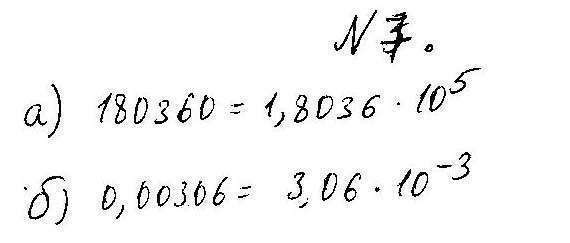 N 7.
а) 180360 = 1,8036 · 10⁵
б) 0,00306 = 3,06 · 10⁻³